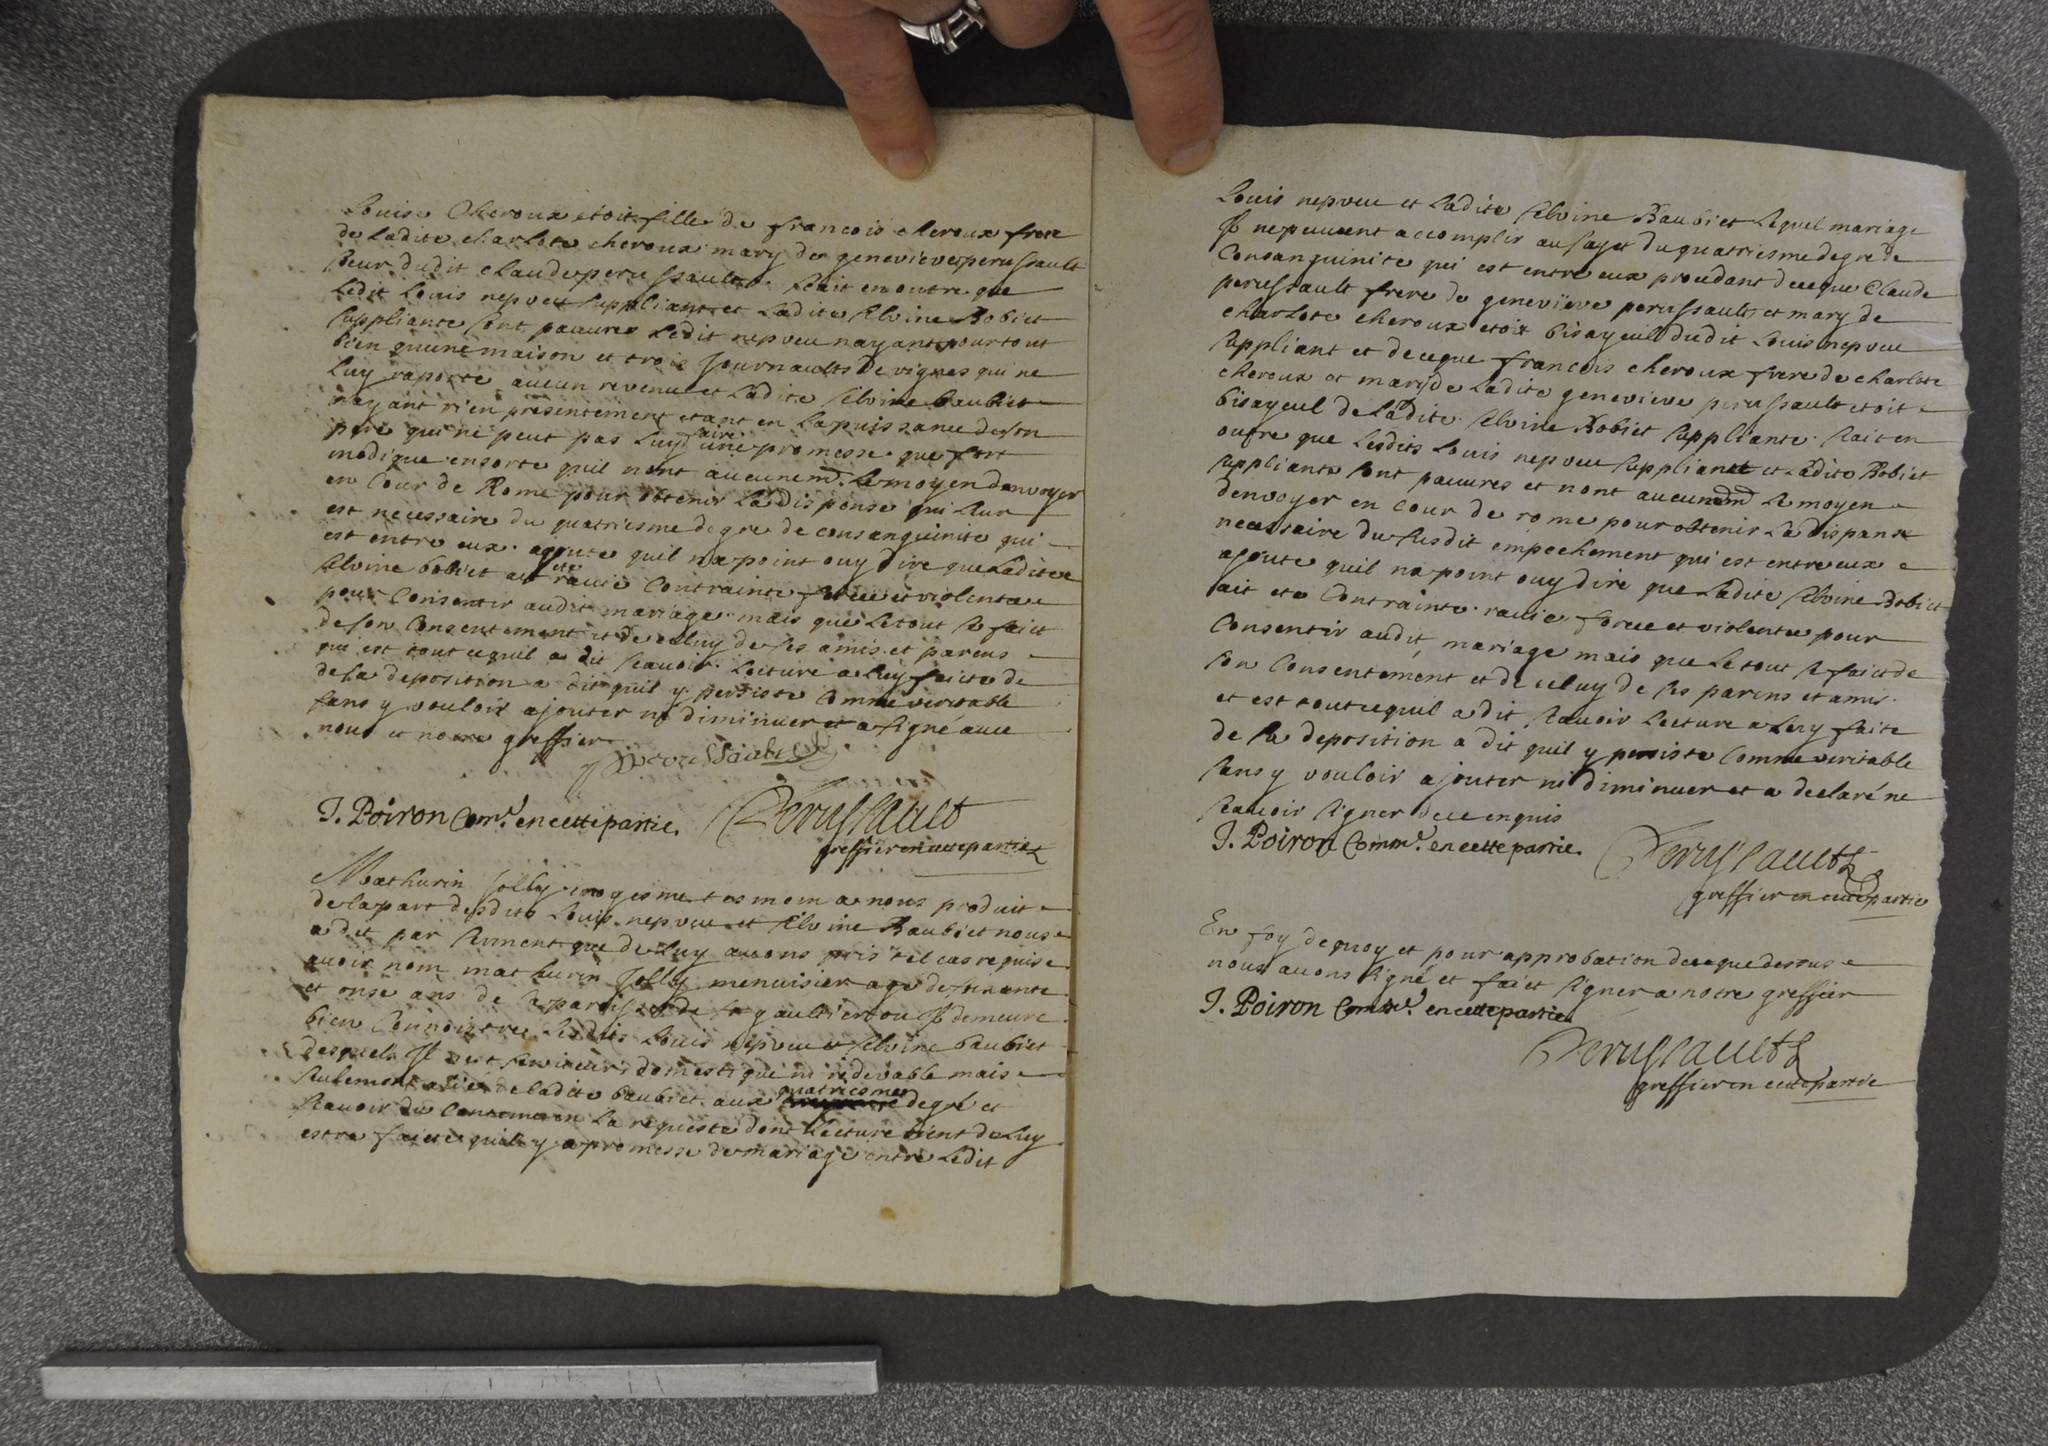 Louise Cheroux etoit fille de francois cheroux frere
de Ladite charlote cheroux mary de genevieve perussault
seur dudit claude perussault. scait en outre que
Ledit Louis nepveu suppliant et Ladite Silvine Bobiet
suppliante sont pauures Ledit nepveu nayant pour tout
bien quune maison et trois Journaults de vignes qui ne
Luy raporte aucun revenu et Ladite Silvine baubiet
nayant rien presentement etant en La puissance de son
pere qui ne peut pas Luy faire une promesse que fort
modique ensorte quil nont aucunemt. Le moyen denvoyer
en Cour de Rome pour obtenir La dispense qui Leur
est necessaire du quatriesme degre de consanguinite qui
est entre eux. ajoute quil na point ouy dire que Ladite
Silvine bobiet ait ete ravie Contrainte forcee et violentee
pour Consentir audit mariage mais que Le tout se faict
de son Consentement et de celuy de ses amis et parens
qui est tout cequil a dit scauoir. Lecture a Luy faicte de
de sa deposition a dit quil y persiste Comme veritable
sans y vouloir ajouter ni diminuer et a signé avec
nous et nostre greffier
J. Poiron Comre. en cette partie. Perussault
greffier en cette partie
Mathurin Jolly troisiesme tesmoin a nous produit
de la part desdits Louis nepveu et Silvine Baubiet nous
a dit par serment que de Luy auons pris tel cas requis
auoir nom mathurin Jolly menuisier age de soixante
et onse ans de La paroisse de st gaultier ou Jl demeure
bien Connoistre Lesdits Louis nepveu et Silvine baubiet
desquels Jl nest serviteur, domestique ni redevable mais
seulement alié de ladite baubiet aux quatriesmes degré et
scauoir du Contenu en La requeste dont Lecture vient de Luy
estre faicte quil y a promesse de mariage entre Ledit
Louis nepveu et Ladite Silvine Baubiet Lequel mariage
Jls ne peuuent accomplir au sujet du quatriesme degre de
Consanguinite qui est entre eux procedant de ceque Claude
perussault frere de geneviève perussault et mary de
charlote cheroux etoit bisayeul dudit Louis nepveu
suppliant et de ceque francois cheroux frere de charlote
cheroux et mary de Ladite genevieve perussault etoit
bisayeul de Ladite Silvine Bobiet suppliante. scait en
outre que Lesdits Louis nepveu suppliant et Ladite Bobiet
suppliante sont pauures et nont aucunemt Le moyen
denvoyer en Cour de rome pour obtenir La dispanse
necessaire du susdit empechement qui est entre eux
ajoute quil na point ouy dire que Ladite Silvine Bobiet
ait ete Contrainte ravie, forcee et violentee pour
Consentir audit mariage mais que Le tout se faict de
son Consentement et de celuy de ses parens et amis
et est tout cequil a dit scauoir Lecture a Luy faite
de sa deposition a dit quil y persiste Comme veritable
sans y vouloir ajouter ni diminuer et a declaré ne
scauoir signer de ce enquis
J. Poiron Commre. en cette partie. Perussault
greffier en cette partie
En foy de quoy et pour approbation de ceque dessus
nous auons signé et faict signer a notre greffier
J. Poiron Commre. en cette partie
Perussault
greffier en cette partie